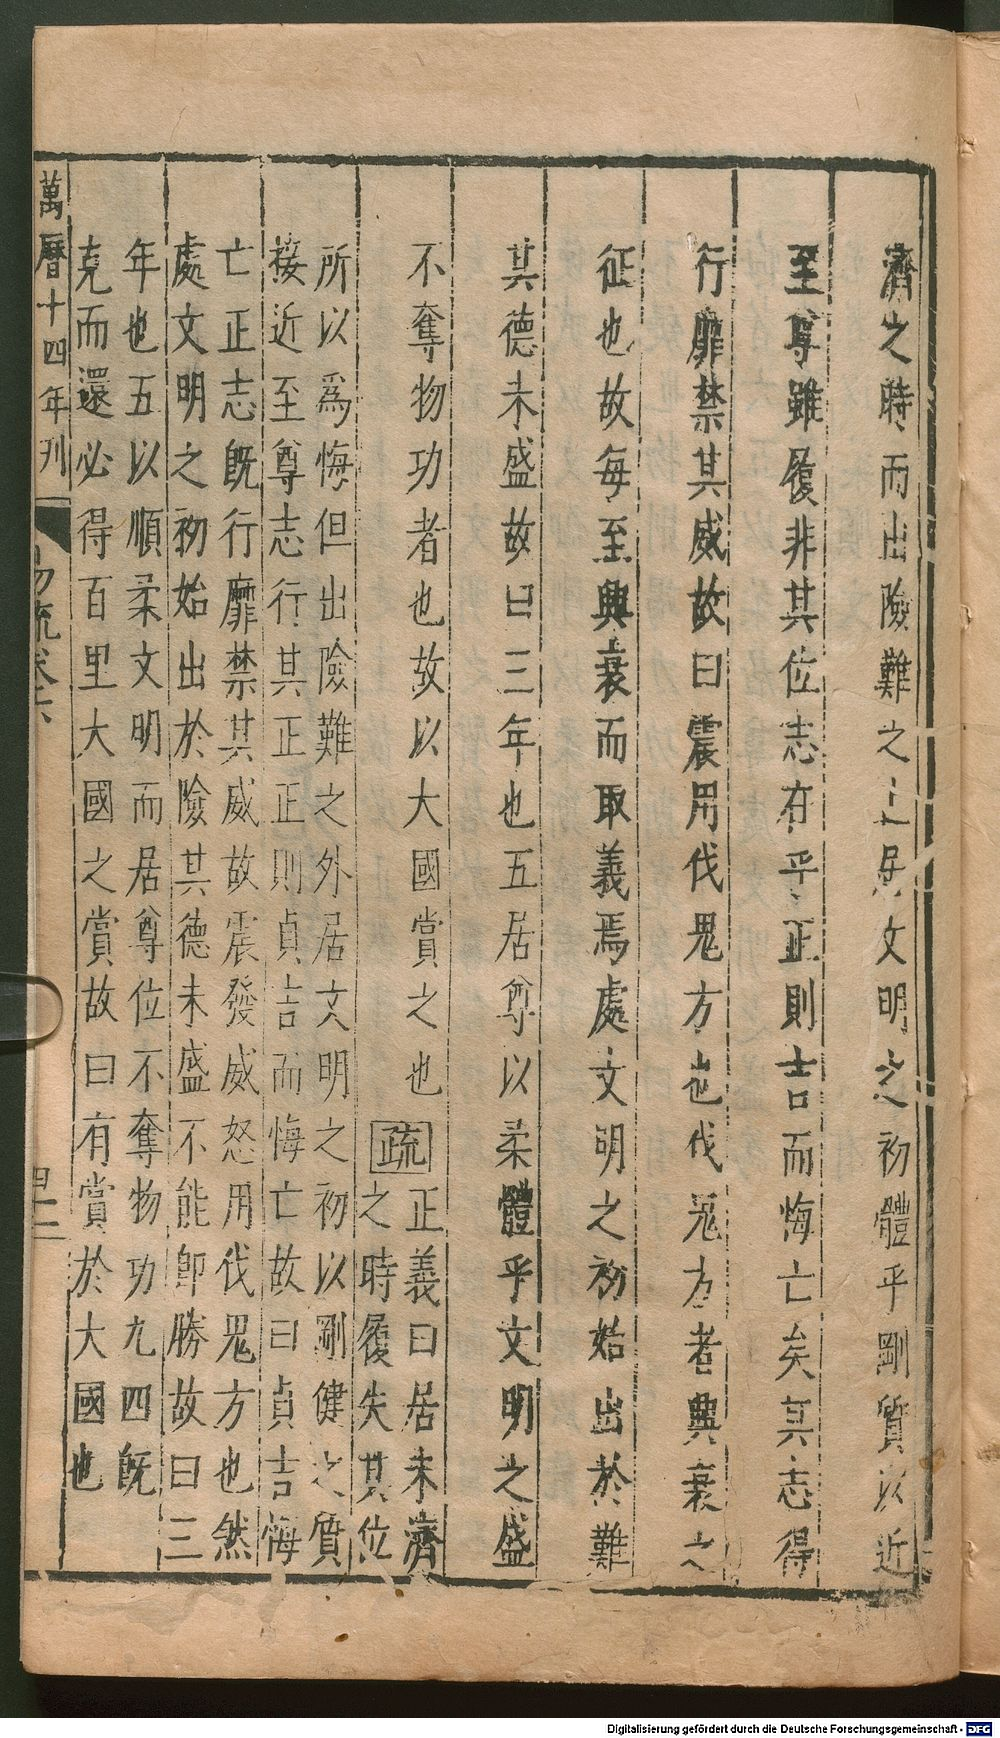 濟之時而出險難之上居文明之初體乎剛質以近
至尊雖履非其位志在乎正則吉而悔亡矣其志得
行靡禁其威故曰震用伐鬼方也伐鬼方者興衰之
征也故每至興衰而取義焉處文明之初始出於難
其德未盛故曰三年也五居尊以柔體乎文明之盛
不奪物功者也故以大國賞之也
疏
正義曰居未濟
之時履失其位
所以為悔但出險難之外居文明之初以剛健之質
接近至尊志行其正正則貞吉而悔亡故曰貞吉悔
亡正志既行靡禁其威故震發威怒用伐鬼方也然
處文明之初始出於險其德未盛不能即勝故曰三
年也五以順柔文明而居尊位不奪物功九四既
克而還必得百里大國之賞故曰有賞於大國也
萬曆十四年刊
易疏卷六
四二
Digitalisierung gefördert durch die Deutsche Forschungsgemeinschaft - DFG